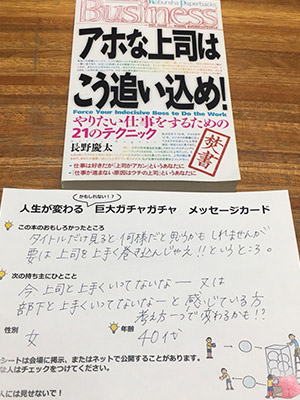 Kobunsha Paperbacks
Business
アホな上司は
こう追い込め!
Force Your Indecisive Boss to Do the Work
やりたい仕事をするための
21のテクニック
長野慶太
禁書
仕事は好きだが「上司がアカン」というあなたに
「仕事が進まない原因はウチの上司」というあなたに
かもしれない!?
人生が変わる 巨大ガチャガチャ メッセージカード
この本のおもしろかったところ
タイトルだけ見ると何様だと思うかもしれませんが
要は上司を上手く巻き込んじゃえ!!というところ。
次の持ち主にひとこと
今上司と上手くいってないなー 又は
部下と上手くいってないなーと感じている方
考え方一つで変わるかも!?
性別 年齢
女 40代
シートは会場に掲示、またはネットで公開することがあります。
な人はチェックをつけてください。
人には見せないで!